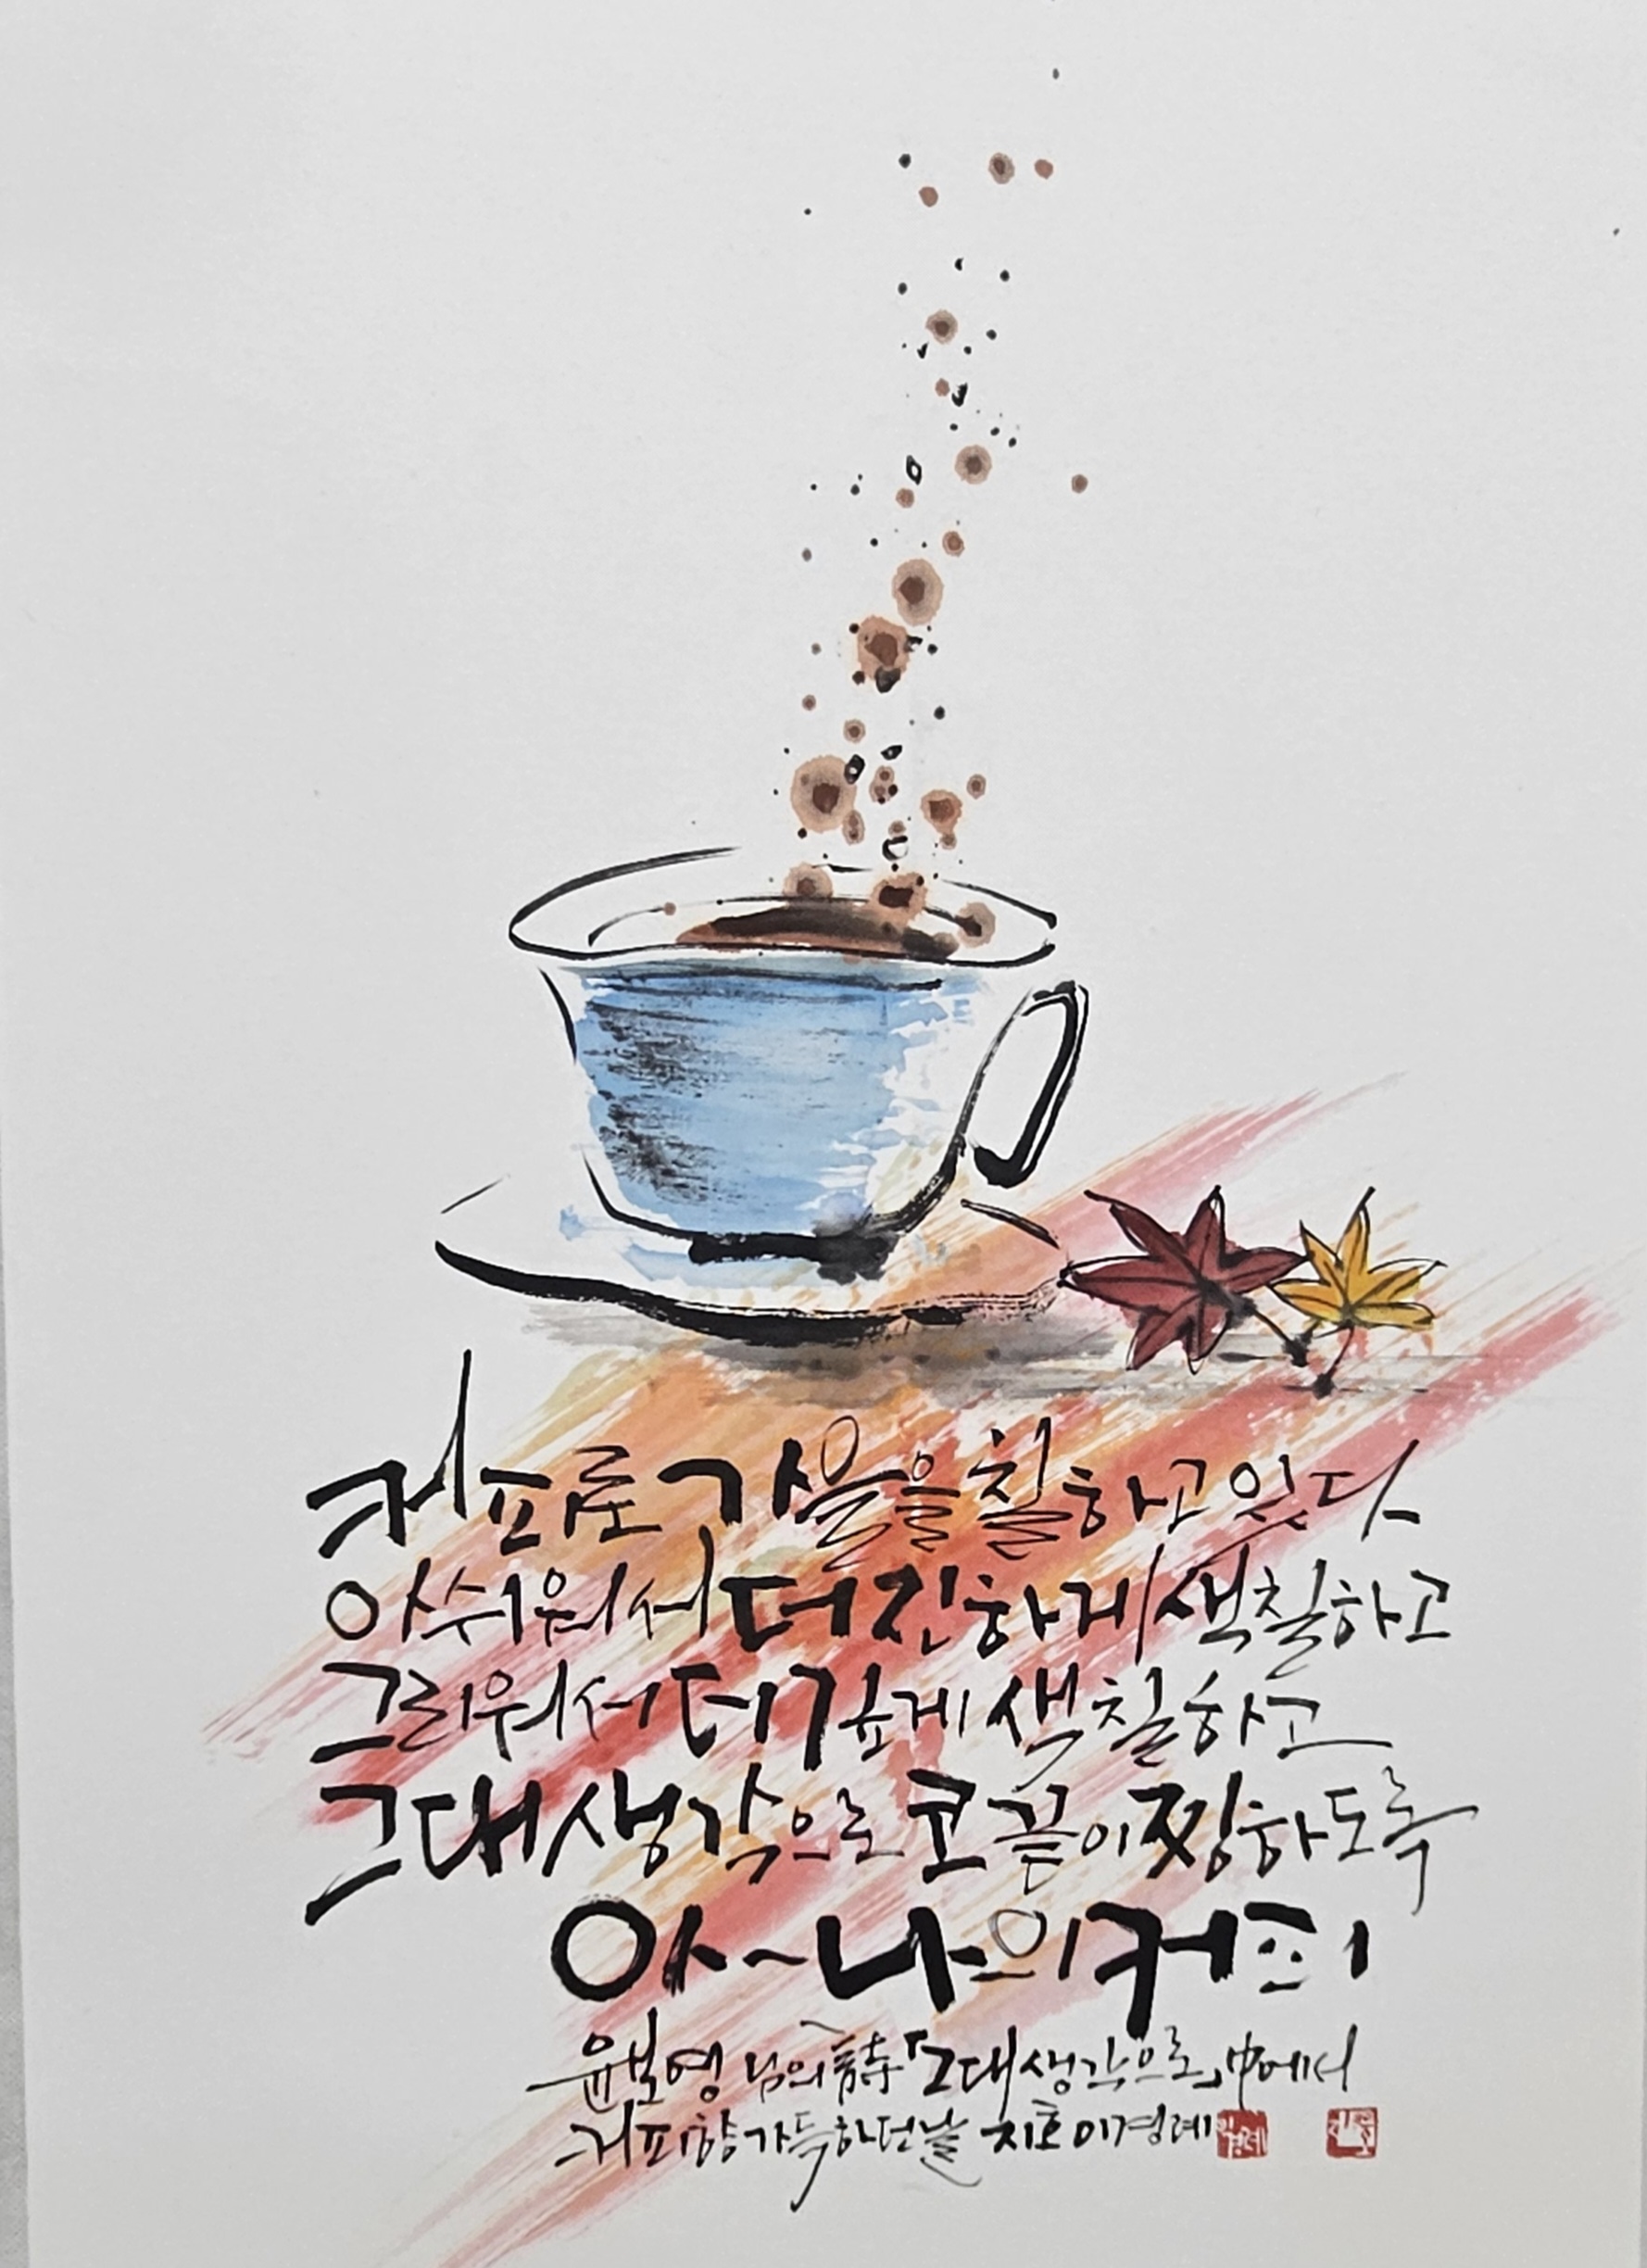 커피로 가을을 칠하고 있다
아쉬워서 더 진하게 색칠하고
그리워서 더 깊게 색칠하고
그대 생각으로 코끝이 찡하도록
아~ 나의 커피
윤보영 님의 詩 「그대 생각으로」 中에서
커피향 가득하던 날 지호 이경례
이경례
지호